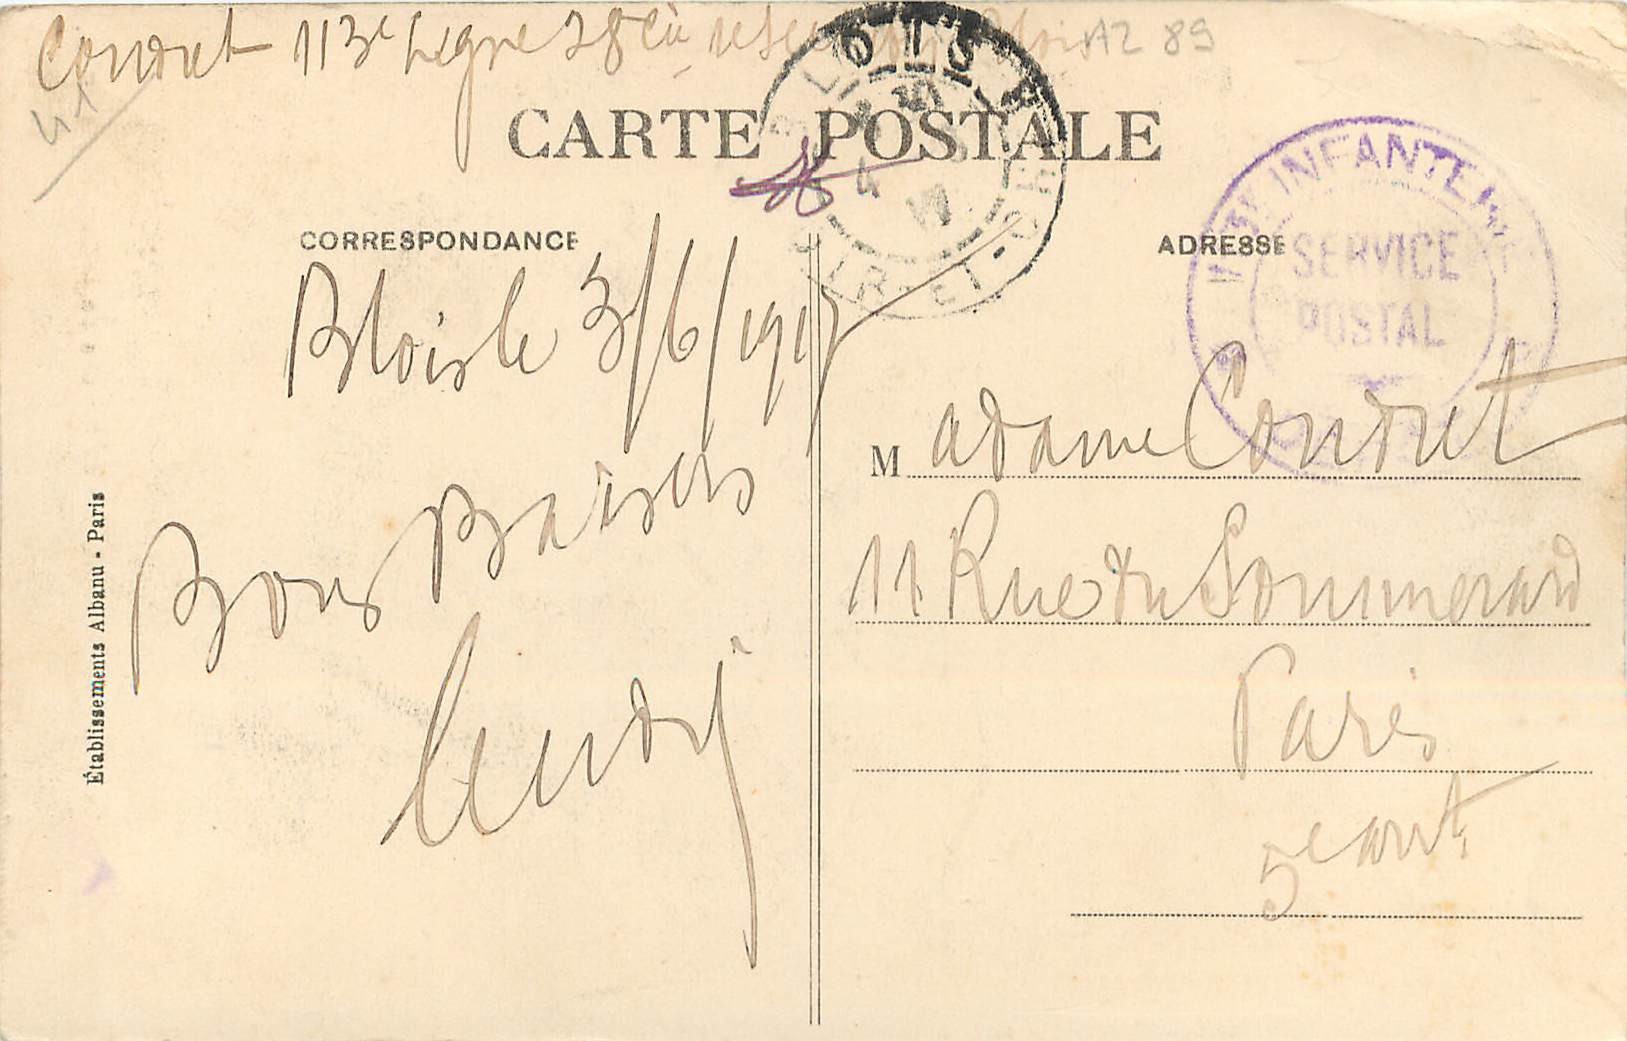 Condret 113e Ligne 28e Cie
AZ 89
41
CARTE POSTALE
BLOIS
LOIR-ET-CHER
INFANTERIE
SERVICE
POSTAL
CORRESPONDANCE
ADRESSE
Blois le 3/6/1917
Bons Baisers
Andy
Madame Condret
11 Rue du Sommerard
Paris
5e arrt
Établissements Albanu - Paris